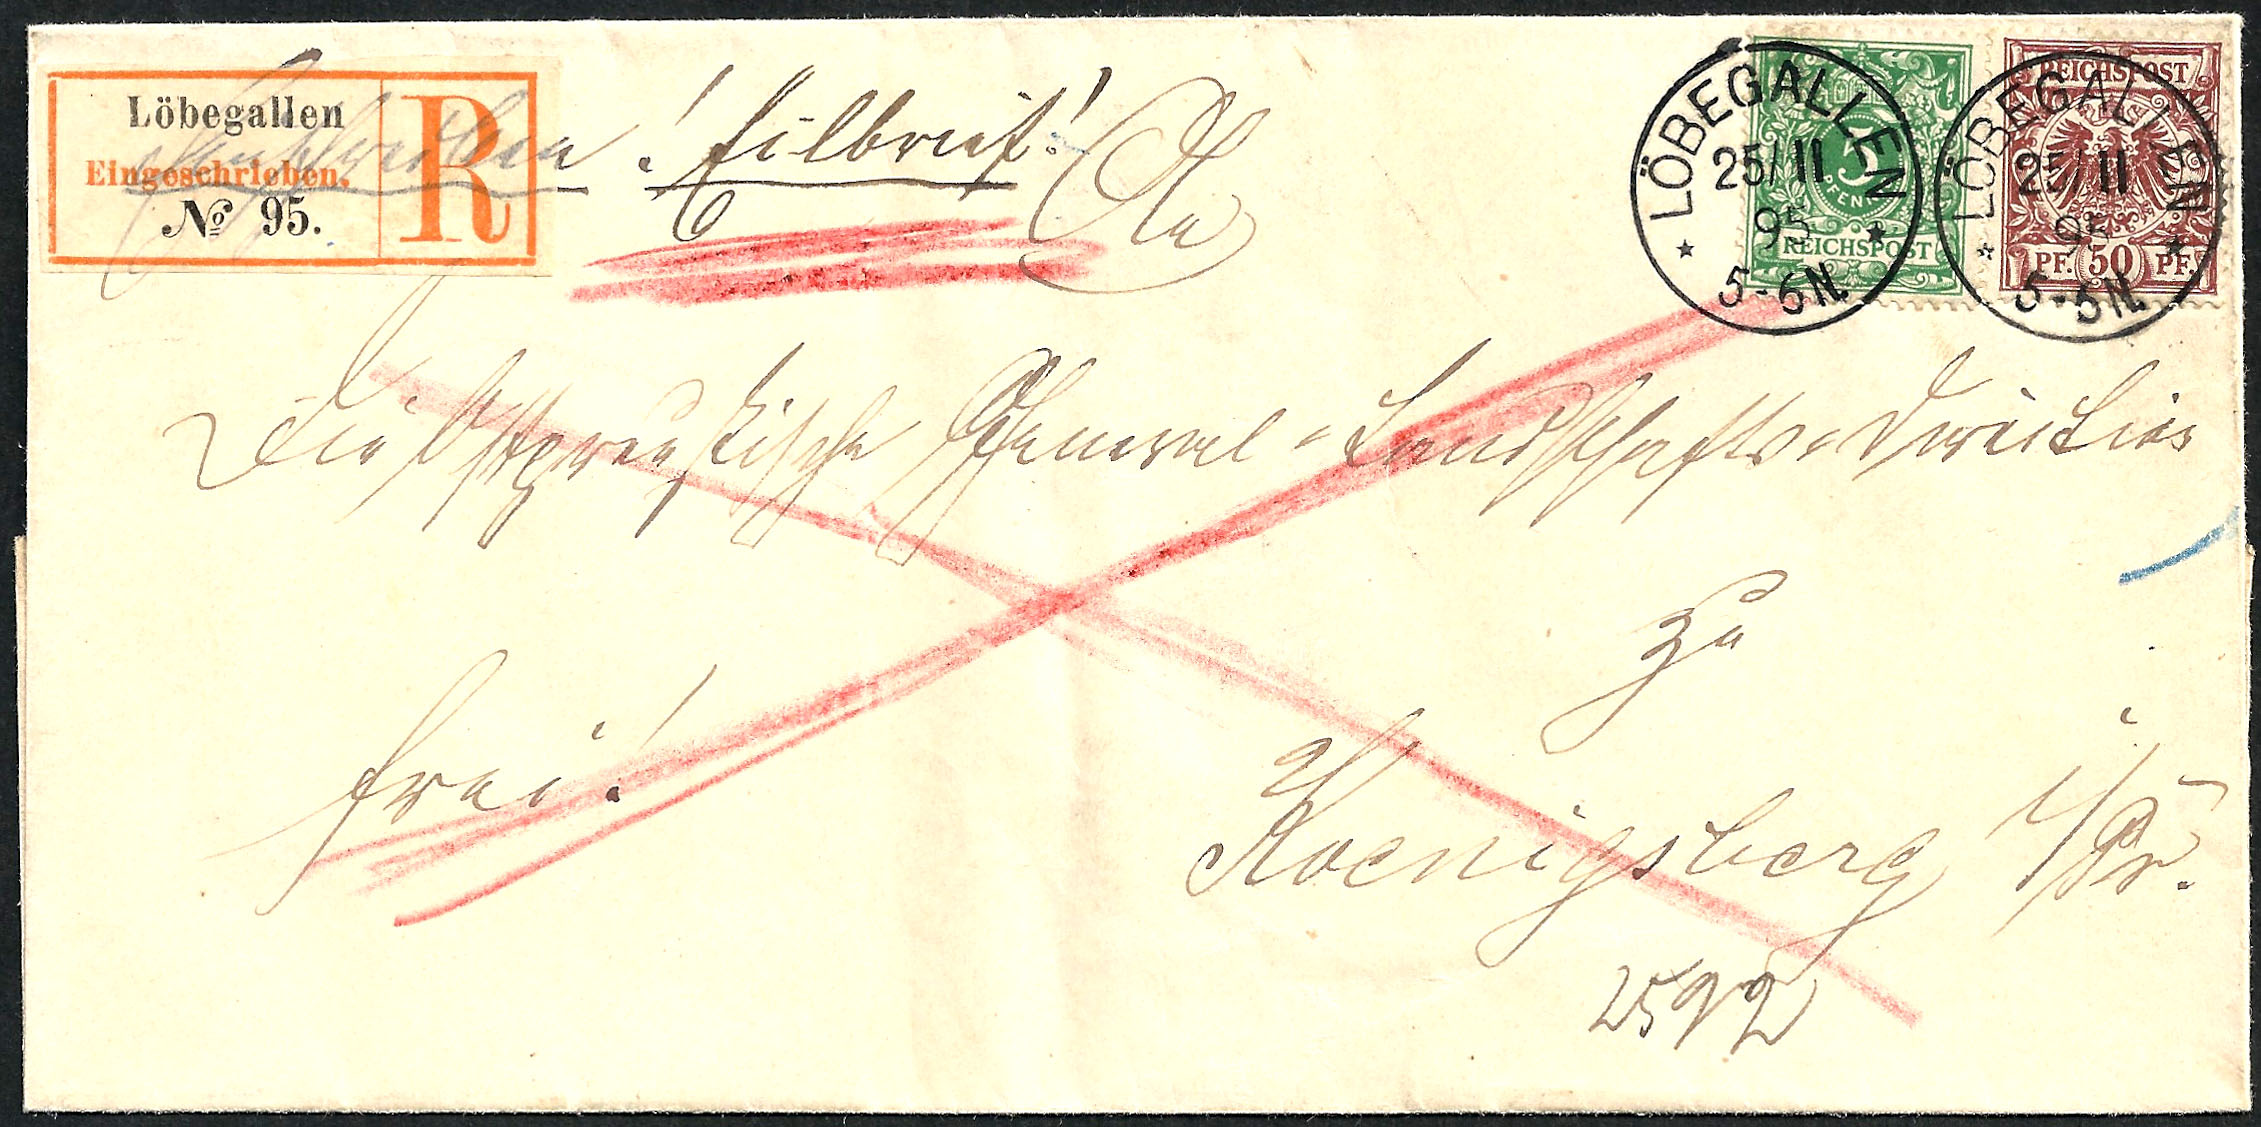 Löbegallen
Eingeschrieben.
№ 95.
R
Einschreiben! Eilbrief!
An
Die Ostpreußische General-Landschafts-Direction
zu
Koenigsberg i/Pr.
frei!
2592
LÖBEGALLEN
25/11
95
5-6N.
5
PFENNIG
REICHSPOST
LÖBEGALLEN
25/11
95
5-6N.
REICHSPOST
PF. 50 PF.